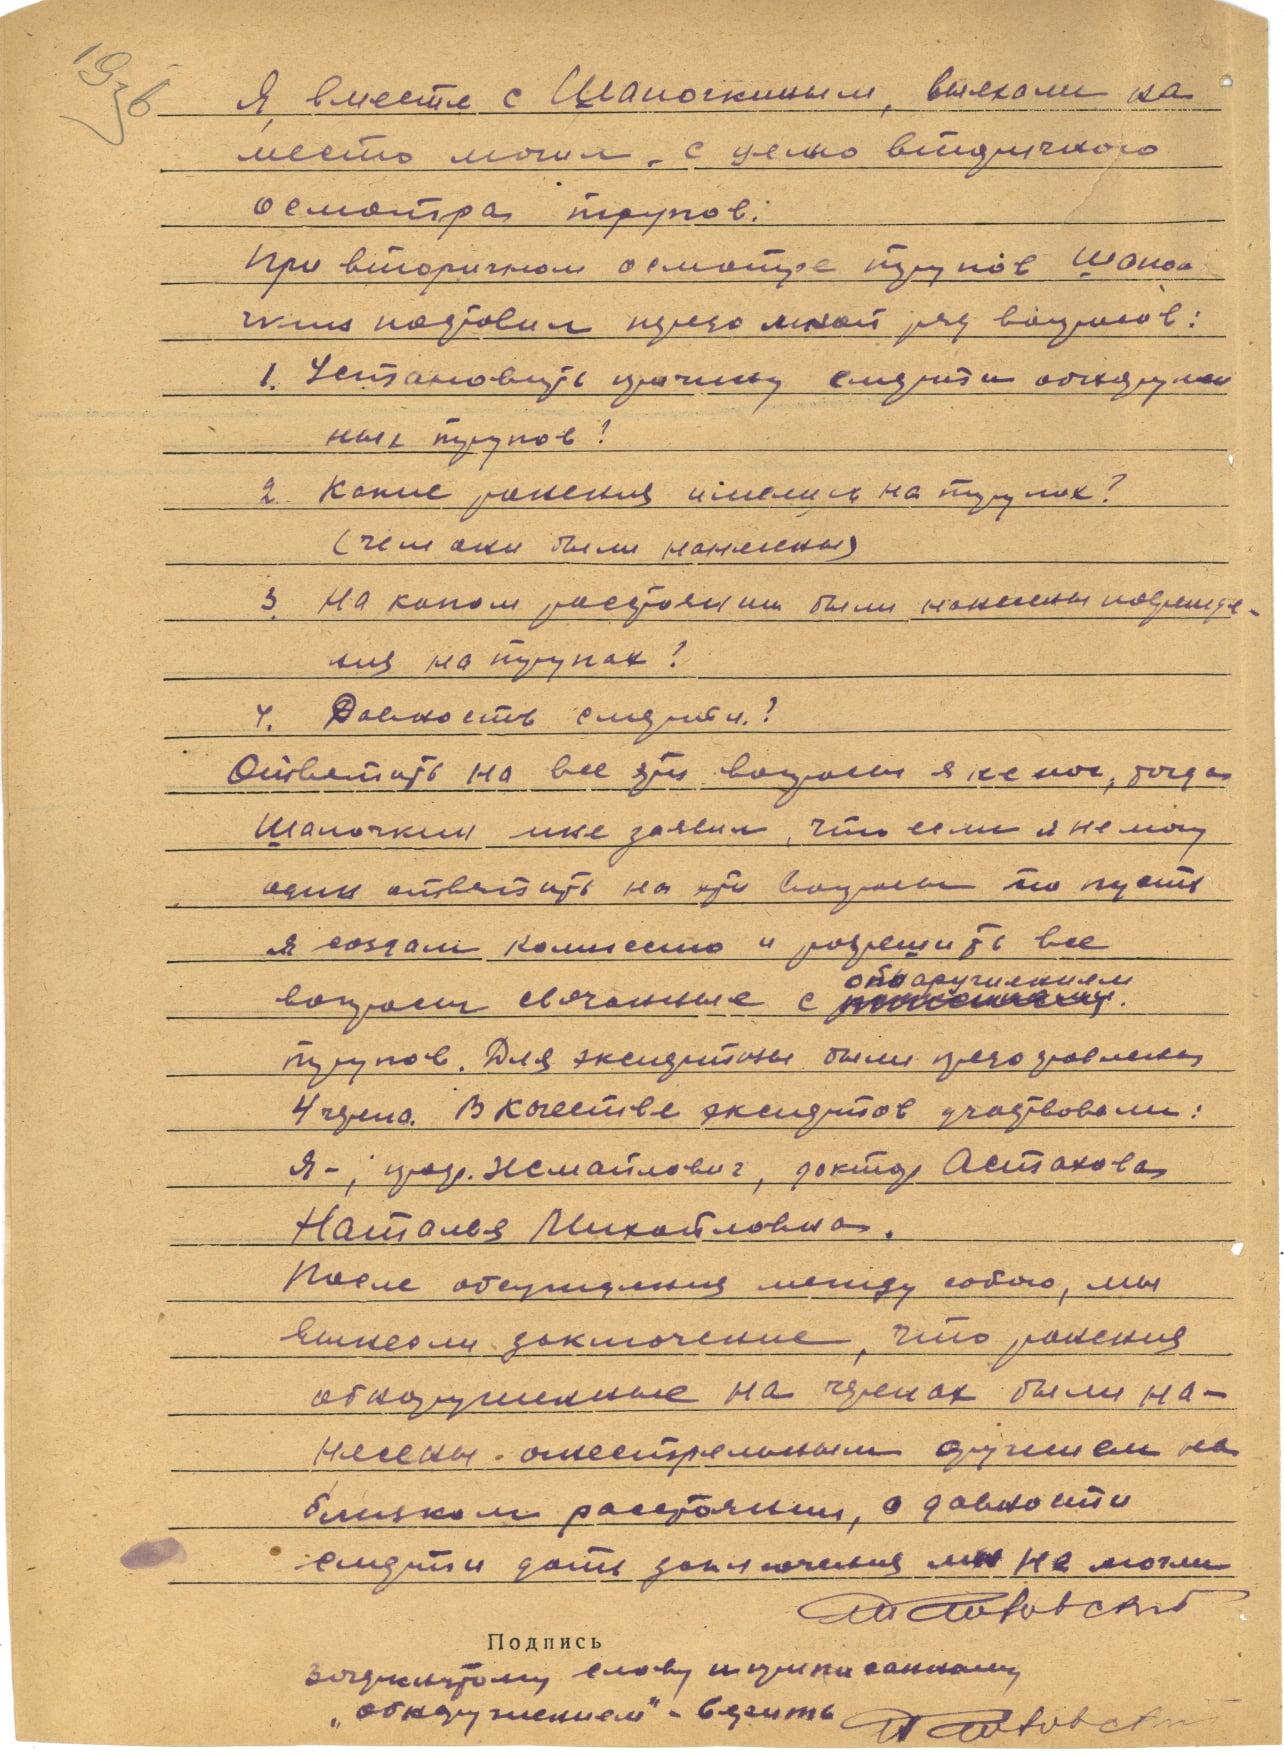 Я, вместе с Шапочкиным, выехали на
место могил, с целью вторичного
осмотра трупов.
При вторичном осмотре трупов Шапоч
чкин поставил предо мной ряд вопросов:
1. Установить причину смерти обнаружен
ных трупов?
2. Какие ранения имелись на трупах?
(чем они были нанесены)
3. На каком расстоянии были нанесены поврежде-
ния на трупах?
4. Давность смерти?
Ответить на все эти вопросы я не мог, тогда
Шапочкин мне заявил, что если я не могу
один ответить на эти вопросы то пусть
я создам комиссию и разрешить все
обнаружением
вопросы связанные с
трупов. Для экспертизы были предоставлены
4 черепа. В качестве экспертов участвовали:
Я-, проф. Исмайлович, доктор Астахова
Наталья Михайловна.
После обсуждения между собою, мы
вынесли заключение, что ранения
обнаруженные на черепах были на-
несены огнестрельным оружием на
близком расстоянии, о давности
смерти дать заключения мы не могли
Подпись
Зачеркнутому слову и приписанному
"обнаружением" - верить